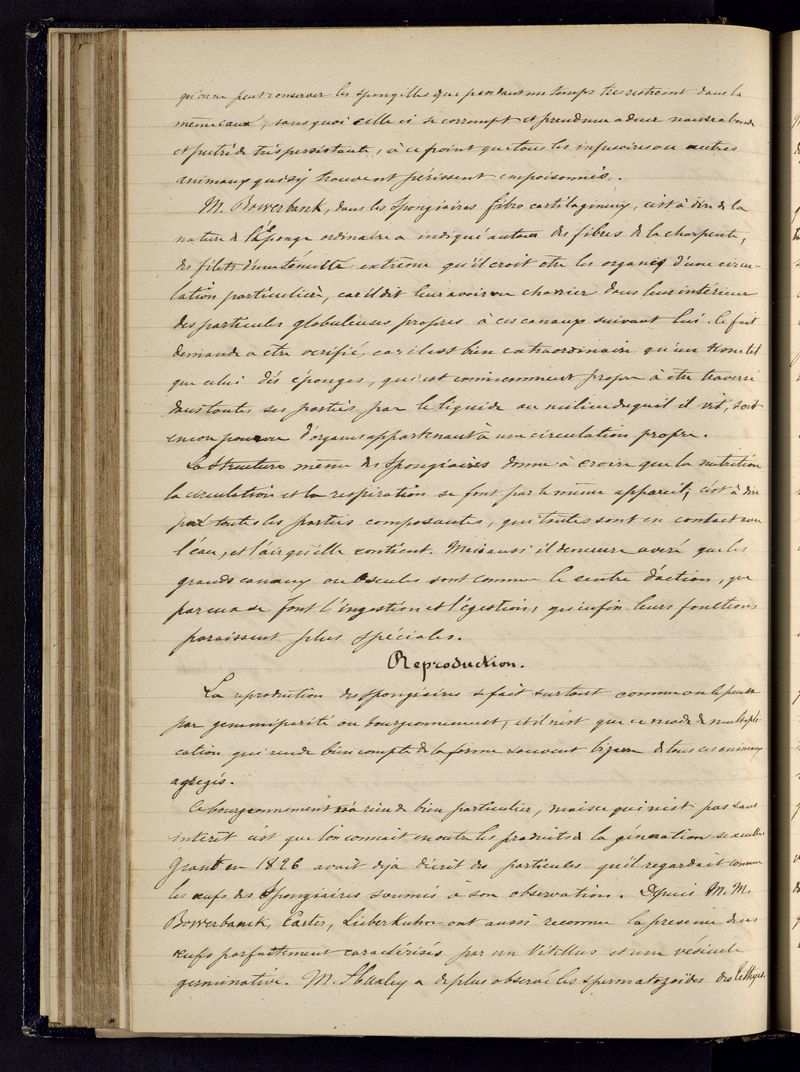 qu'on ne peut conserver les spongilles que pendant un temps très restreint dans la
même eau, sans quoi celle ci se corrompt et prend une odeur nauséabonde
et putride très persistante, à ce point que tous les infusoires ou autres
animaux qui s'y trouvent périssent empoisonnés.
M. Bowerbank, dans les Spongiaires fibro cartilagineux, c'est à dire de la
nature de l'Éponge ordinaire a indiqué autour des fibres de la charpente,
des filets d'une ténuité extrême qu'il croit être les organes d'une circu-
lation particulière, car il dit leur avoir vu charrier dans leur intérieur
des particules globuleuses propres à ces canaux suivant lui. Ce fait
demande a être verifié, car il est bien extraordinaire qu'un tissu tel
que celui dés éponges, qui est eminemment propre à être traversé
dans toutes ses parties par le liquide au milieu duquel il vit, soit
encore pourvu d'organes appartenant à une circulation propre.
La structure même des Spongiaires donne à croire que la nutrition
la circulation et la respiration se font par le même appareil, c'est à dire
par toutes les parties composantes, qui toutes sont en contact avec
l'eau, et l'air qu'elle contient. Mais aussi il demeure avéré que les
grands canaux ou Oscules sont comme le centre d'action, que
par eux se font l'ingestion et l'égestion, qu'enfin leurs fonctions
paraissent plus spéciales.
Reproduction.
La reproduction des Spongiaires se fait surtout comme on le pense
par gemmiparité ou bourgeonnement, et il n'est que ce mode de multipli-
cation qui rende bien compte de la forme souvent bizarre de tous ces animaux
agrégés.
Ce bourgeonnement n'a rien de bien particulier, mais ce qui n'est pas sans
intérêt c'est que l'on connait en outre les produits de la génération sexuelle
Grant en 1826 avait déjà décrit des particules qu'il regardait comme
les œufs des Spongiaires soumis à son observation. Depuis M.M.
Bowerbank, Carter, Lieberkuhn ont aussi reconnu la présence de ces
œufs parfaitement caractérisés par un Vitellus et une vésicule
germinative. M. Huxley a de plus observé les spermatozoïdes des Téthyes.